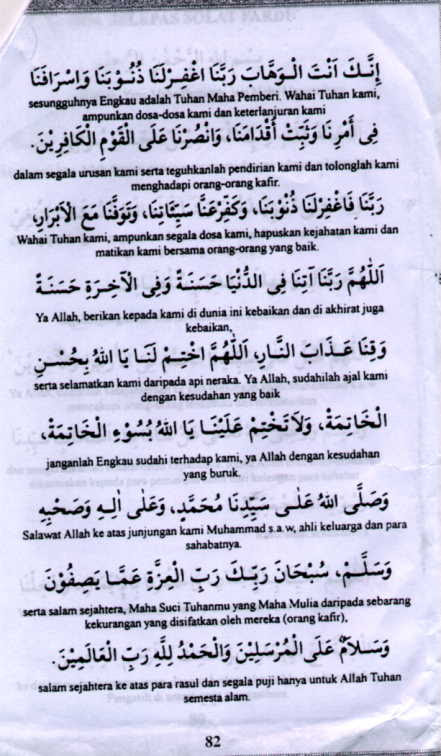 إِنَّكَ اَنْتَ الْوَهَّابَ رَبَّنَا اغْفِرْلَنَا ذُنُوْبَنَا وَاِسْرَافَنَا
sesungguhnya Engkau adalah Tuhan Maha Pemberi. Wahai Tuhan kami,
ampunkan dosa-dosa kami dan keterlanjuran kami
فِى أَمْرِنَا وَثَبِّتْ أَقْدَامَنَا، وَانْصُرْنَا عَلَى الْقَوْمِ الْكَافِرِيْنَ.
dalam segala urusan kami serta teguhkanlah pendirian kami dan tolonglah kami
menghadapi orang-orang kafir.
رَبَّنَا فَاغْفِرْلَنَا ذُنُوْبَنَا، وَكَفِّرْعَنَّا سَيِّئَاتِنَا، وَتَوَفَّنَا مَعَ الْاَبْرَارِ،
Wahai Tuhan kami, ampunkan segala dosa kami, hapuskan kejahatan kami dan
matikan kami bersama orang-orang yang baik.
اَللّٰهُمَّ رَبَّنَا آتِنَا فِى الدُّنْيَا حَسَنَةً وَفِى الْآخِرَةِ حَسَنَةً
Ya Allah, berikan kepada kami di dunia ini kebaikan dan di akhirat juga
kebaikan,
وَقِنَا عَذَابَ النَّارِ، اَللّٰهُمَّ اخْتِمْ لَنَا يَا اللهُ بِحُسْنِ
serta selamatkan kami daripada api neraka. Ya Allah, sudahilah ajal kami
dengan kesudahan yang baik
الْخَاتِمَةُ، وَلَا تَخْتِمْ عَلَيْنَا يَا اللهُ بِسُوْءِ الْخَاتِمَةُ،
janganlah Engkau sudahi terhadap kami, ya Allah dengan kesudahan
yang buruk.
وَصَلَّى اللهُ عَلٰى سَيِّدِنَا مُحَمَّدٍ، وَعَلٰى اٰلِهِ وَصَحْبِهِ
Salawat Allah ke atas junjungan kami Muhammad s.a.w, ahli keluarga dan para
sahabatnya.
وَسَلَّمْ، سُبْحَانَ رَبِّكَ رَبِّ الْعِزَّةِ عَمَّا يَصِفُوْنَ
serta salam sejahtera, Maha Suci Tuhanmu yang Maha Mulia daripada sebarang
kekurangan yang disifatkan oleh mereka (orang kafir),
وَسَلَامٌ عَلَى الْمُرْسَلِيْنَ وَالْحَمْدُ لِلّٰهِ رَبِّ الْعَالَمِيْنَ.
salam sejahtera ke atas para rasul dan segala puji hanya untuk Allah Tuhan
semesta alam.
82